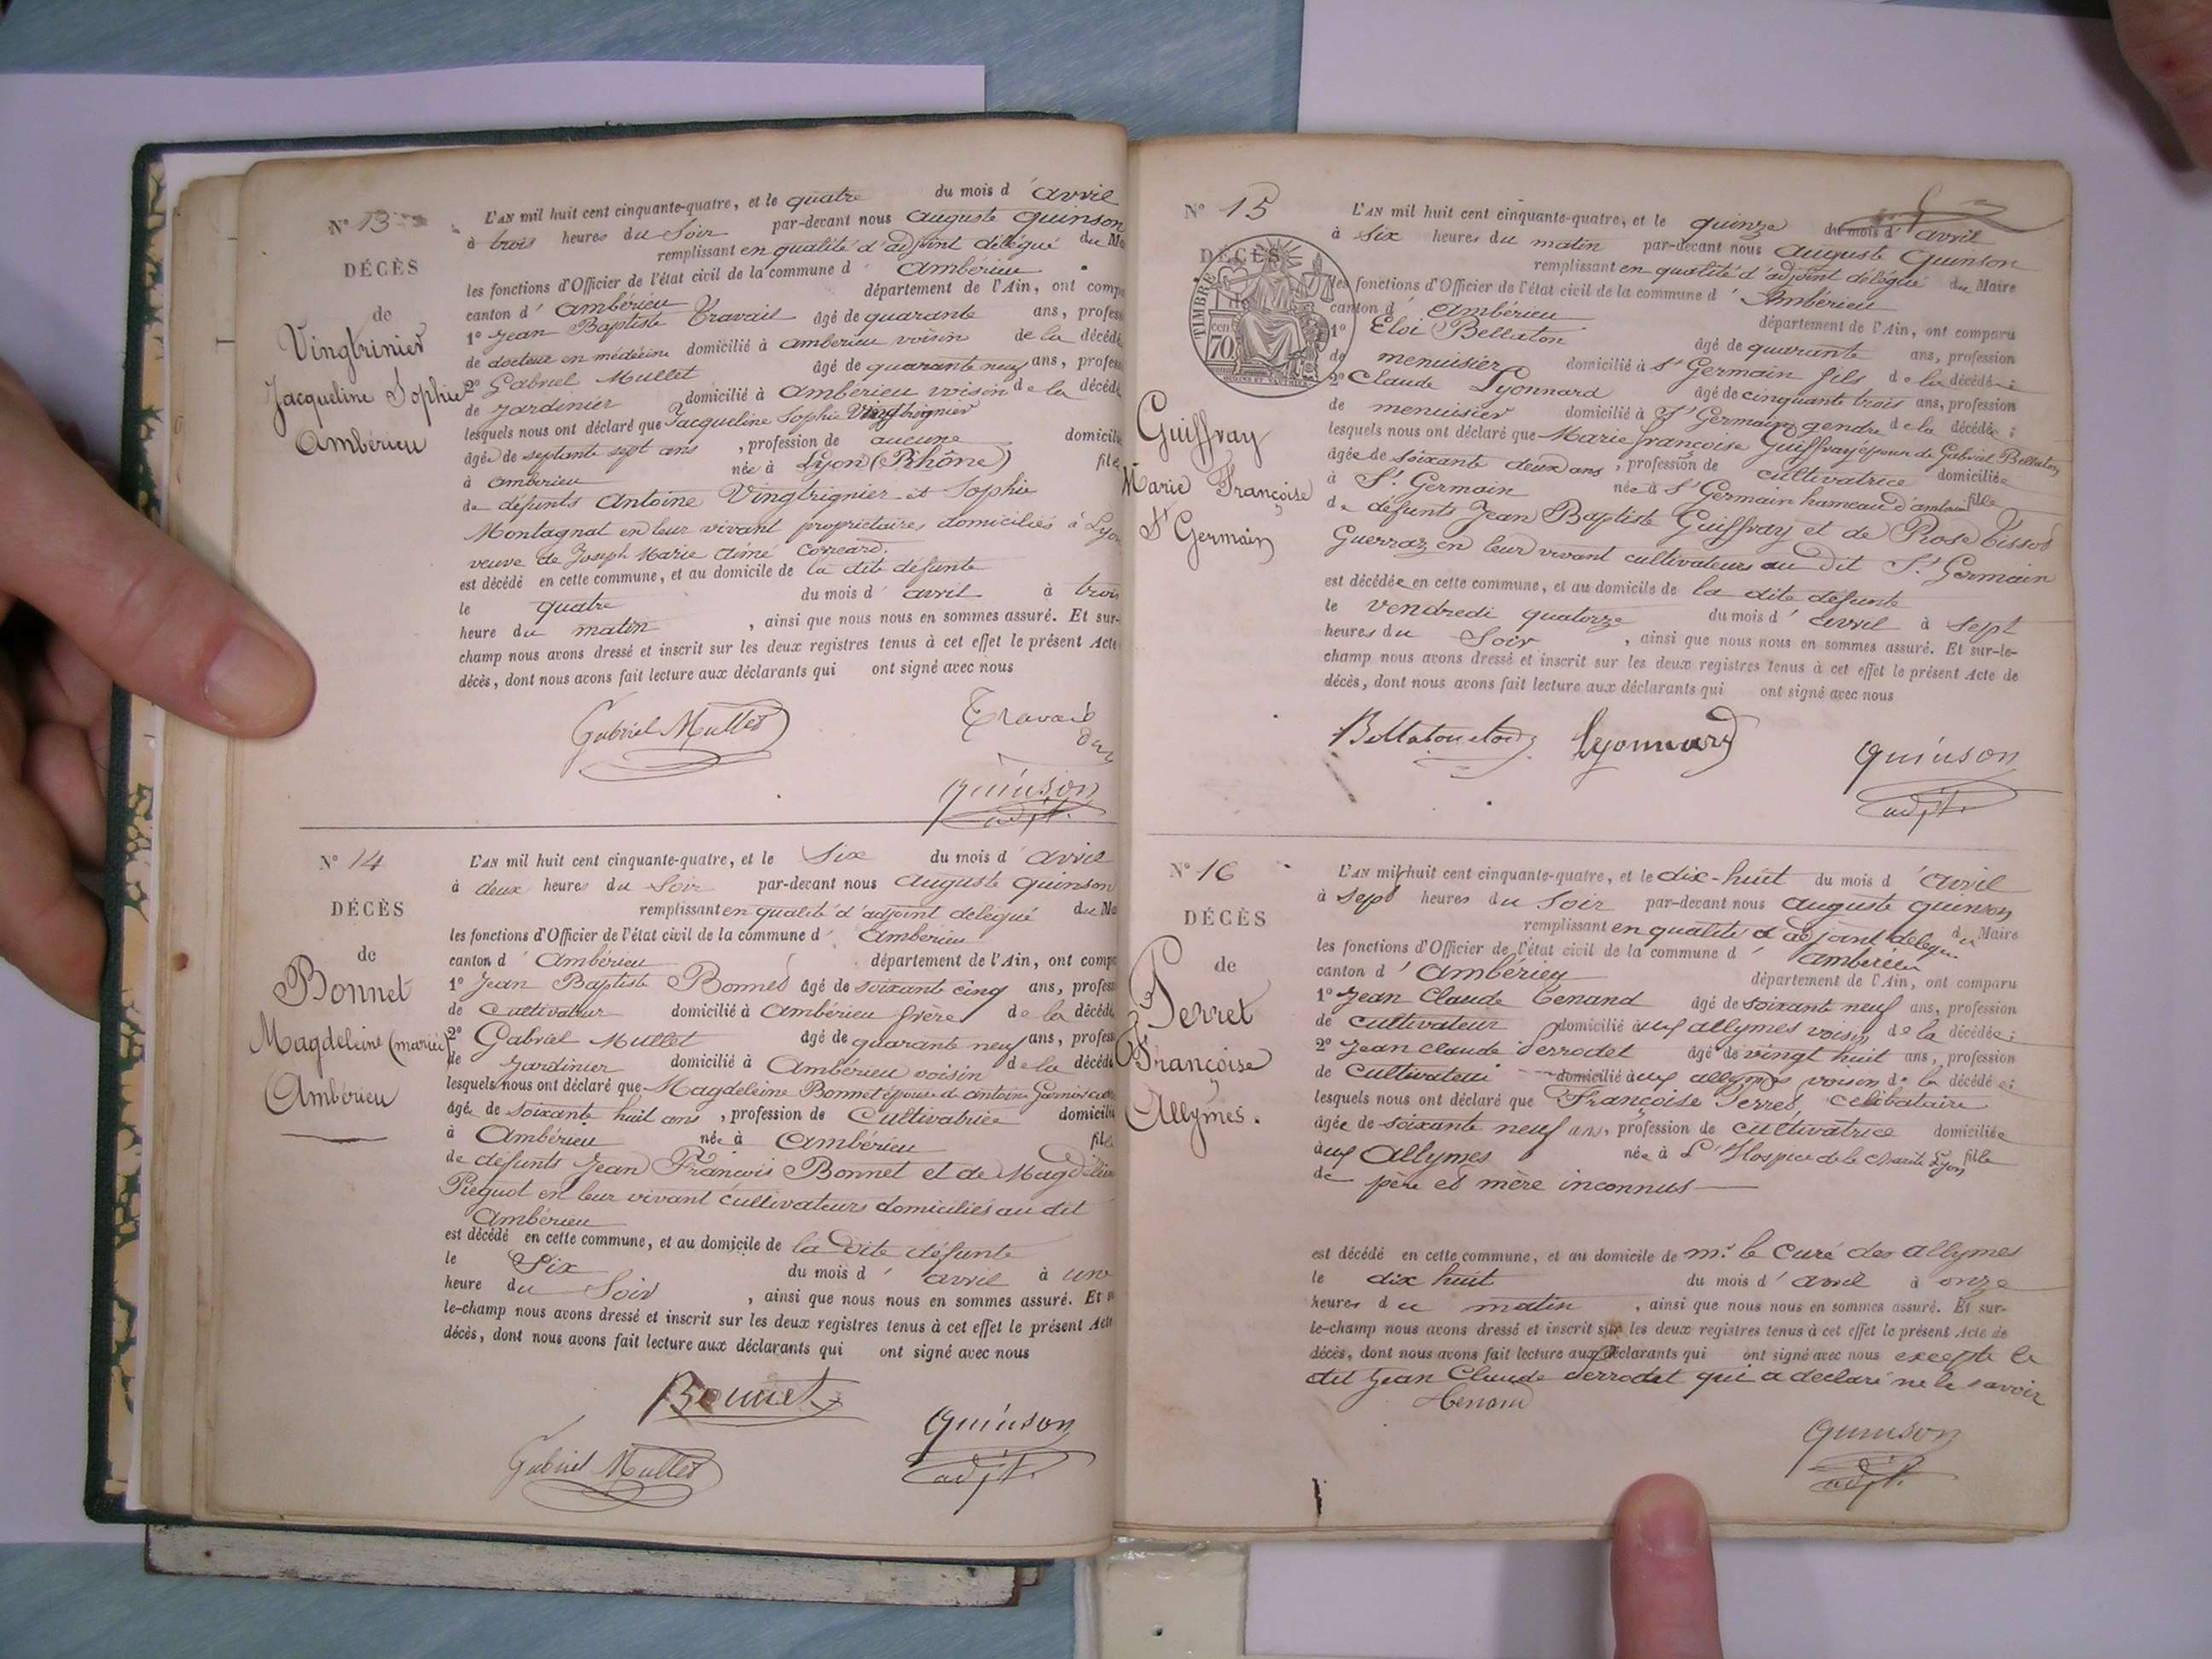 N° 13
DÉCÈS
de
Vingtrinier
Jacqueline Sophie
Ambérieu
L'AN mil huit cent cinquante-quatre, et le quatre du mois d'avril
à trois heures du Soir par-devant nous Auguste Quinson
remplissant en qualité d'adjoint délégué du Ma
les fonctions d'Officier de l'état civil de la commune d'Ambérieu
canton d'Ambérieu département de l'Ain, ont compa
1° Jean Baptiste Travail âgé de quarante ans, profess
de docteur en médecine domicilié à Ambérieu voisin de la décédé
2° Gabriel Mullet âgé de quarante neuf ans, profess
de Jardinier domicilié à Ambérieu voisin de la décédé
lesquels nous ont déclaré que Jacqueline Sophie Vingtrignier
âgée de septante sept ans, profession de aucune domicili
à Ambérieu née à Lyon (Rhône) fille
de défunts Antoine Vingtrignier et Sophie
Montagnat en leur vivant propriétaires domiciliés à Lyon
veuve de Joseph Marie Aimé Correard.
est décédé en cette commune, et au domicile de la dite défunte
le quatre du mois d'avril à trois
heure du matin, ainsi que nous nous en sommes assuré. Et sur-
champ nous avons dressé et inscrit sur les deux registres tenus à cet effet le présent Acte
décès, dont nous avons fait lecture aux déclarants qui ont signé avec nous
Gabriel Mullet Travail
Quinson
adjt.
N° 14
DÉCÈS
de
Bonnet
Magdeleine (mariée)
Ambérieu
L'AN mil huit cent cinquante-quatre, et le Six du mois d'avril
à deux heures du Soir par-devant nous Auguste Quinson
remplissant en qualité d'adjoint délégué du Ma
les fonctions d'Officier de l'état civil de la commune d'Ambérieu
canton d'Ambérieu département de l'Ain, ont compa
1° Jean Baptiste Bonnet âgé de soixante cinq ans, profess
de Cultivateur domicilié à Ambérieu frère de la décédé
2° Gabriel Mullet âgé de quarante neuf ans, profess
de Jardinier domicilié à Ambérieu voisin de la décédé
lesquels nous ont déclaré que Magdeleine Bonnet épouse d'antoine
âgée de soixante huit ans, profession de Cultivatrice domicili
à Ambérieu née à Ambérieu fille
de défunts Jean François Bonnet et de Magdeleine
en leur vivant cultivateurs domiciliés au dit
Ambérieu
est décédé en cette commune, et au domicile de la dite défunte
le Six du mois d'avril à une
heure du Soir, ainsi que nous nous en sommes assuré. Et s
le-champ nous avons dressé et inscrit sur les deux registres tenus à cet effet le présent Acte
décès, dont nous avons fait lecture aux déclarants qui ont signé avec nous
Bonnet
Gabriel Mullet Quinson
adjt.
N° 15
DÉCÈS
de
TIMBRE
70 cen
Guiffray
Marie Françoise
St Germain
L'AN mil huit cent cinquante-quatre, et le quinze du mois d'avril
à Six heures du matin par-devant nous Auguste Quinson
remplissant en qualité d'adjoint délégué du Maire
les fonctions d'Officier de l'état civil de la commune d'Ambérieu
canton d'Ambérieu département de l'Ain, ont comparu
1° Eloi Bellaton âgé de quarante ans, profession
de menuisier domicilié à St Germain fils de la décédée;
2° Claude Lyonnard âgé de cinquante trois ans, profession
de menuisier domicilié à St Germain gendre de la décédée;
lesquels nous ont déclaré que Marie françoise Guiffray épouse de Gabriel Bellaton
âgée de soixante deux ans, profession de cultivatrice domiciliée
à St. Germain née à St Germain hameau d'ambérieu fille
de défunts Jean Baptiste Guiffray et de Rose Tissot
Guerraz en leur vivant cultivateurs au dit St. Germain
est décédée en cette commune, et au domicile de la dite défunte
le vendredi quatorze du mois d'avril à Sept
heures du Soir, ainsi que nous nous en sommes assuré. Et sur-le-
champ nous avons dressé et inscrit sur les deux registres tenus à cet effet le présent Acte de
décès, dont nous avons fait lecture aux déclarants qui ont signé avec nous
Lyonnard Quinson
adjt.
N° 16
DÉCÈS
de
Perret
Françoise
Allymes.
L'AN mil huit cent cinquante-quatre, et le dix-huit du mois d'avril
à Sept heures du Soir par-devant nous Auguste Quinson
remplissant en qualité d'adjoint délégué du Maire
les fonctions d'Officier de l'état civil de la commune d'Ambérieu
canton d'Ambérieu département de l'Ain, ont comparu
1° Jean Claude Tenand âgé de soixante neuf ans, profession
de cultivateur domicilié aux allymes voisin de la décédée;
2° Jean claude Perrodet âgé de vingt huit ans, profession
de Cultivateur domicilié aux allymes voisin de la décédée;
lesquels nous ont déclaré que Françoise Perret, célibataire
âgée de soixante neuf ans, profession de cultivatrice domiciliée
aux Allymes née à L'Hospice de la Charité Lyon fille
de père et mère inconnus
est décédé en cette commune, et au domicile de mr. le Curé des allymes
le dix huit du mois d'avril à onze
heures du matin, ainsi que nous nous en sommes assuré. Et sur-
le-champ nous avons dressé et inscrit sur les deux registres tenus à cet effet le présent Acte de
décès, dont nous avons fait lecture aux déclarants qui ont signé avec nous excepté le
dit Jean Claude Perrodet qui a déclaré ne le savoir
Quinson
adjt.